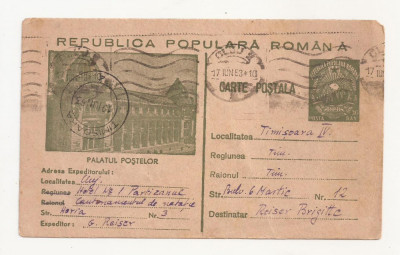 REPUBLICA POPULARĂ ROMÂNĂ
CLUJ
17 IUN 53
CARTE POŞTALĂ
PALATUL POŞTELOR
Adresa Expeditorului:
Localitatea Cluj.
Regiunea Hotel № 1 Partizanul
Raionul Cantonamentul de
Str. Horia Nr. 3
Expeditor: G. Reiser
Localitatea Timişoara IV.
Regiunea Tim.
Raionul Tim.
Str. 6 Martie Nr. 12
Destinatar Reiser Brigitte